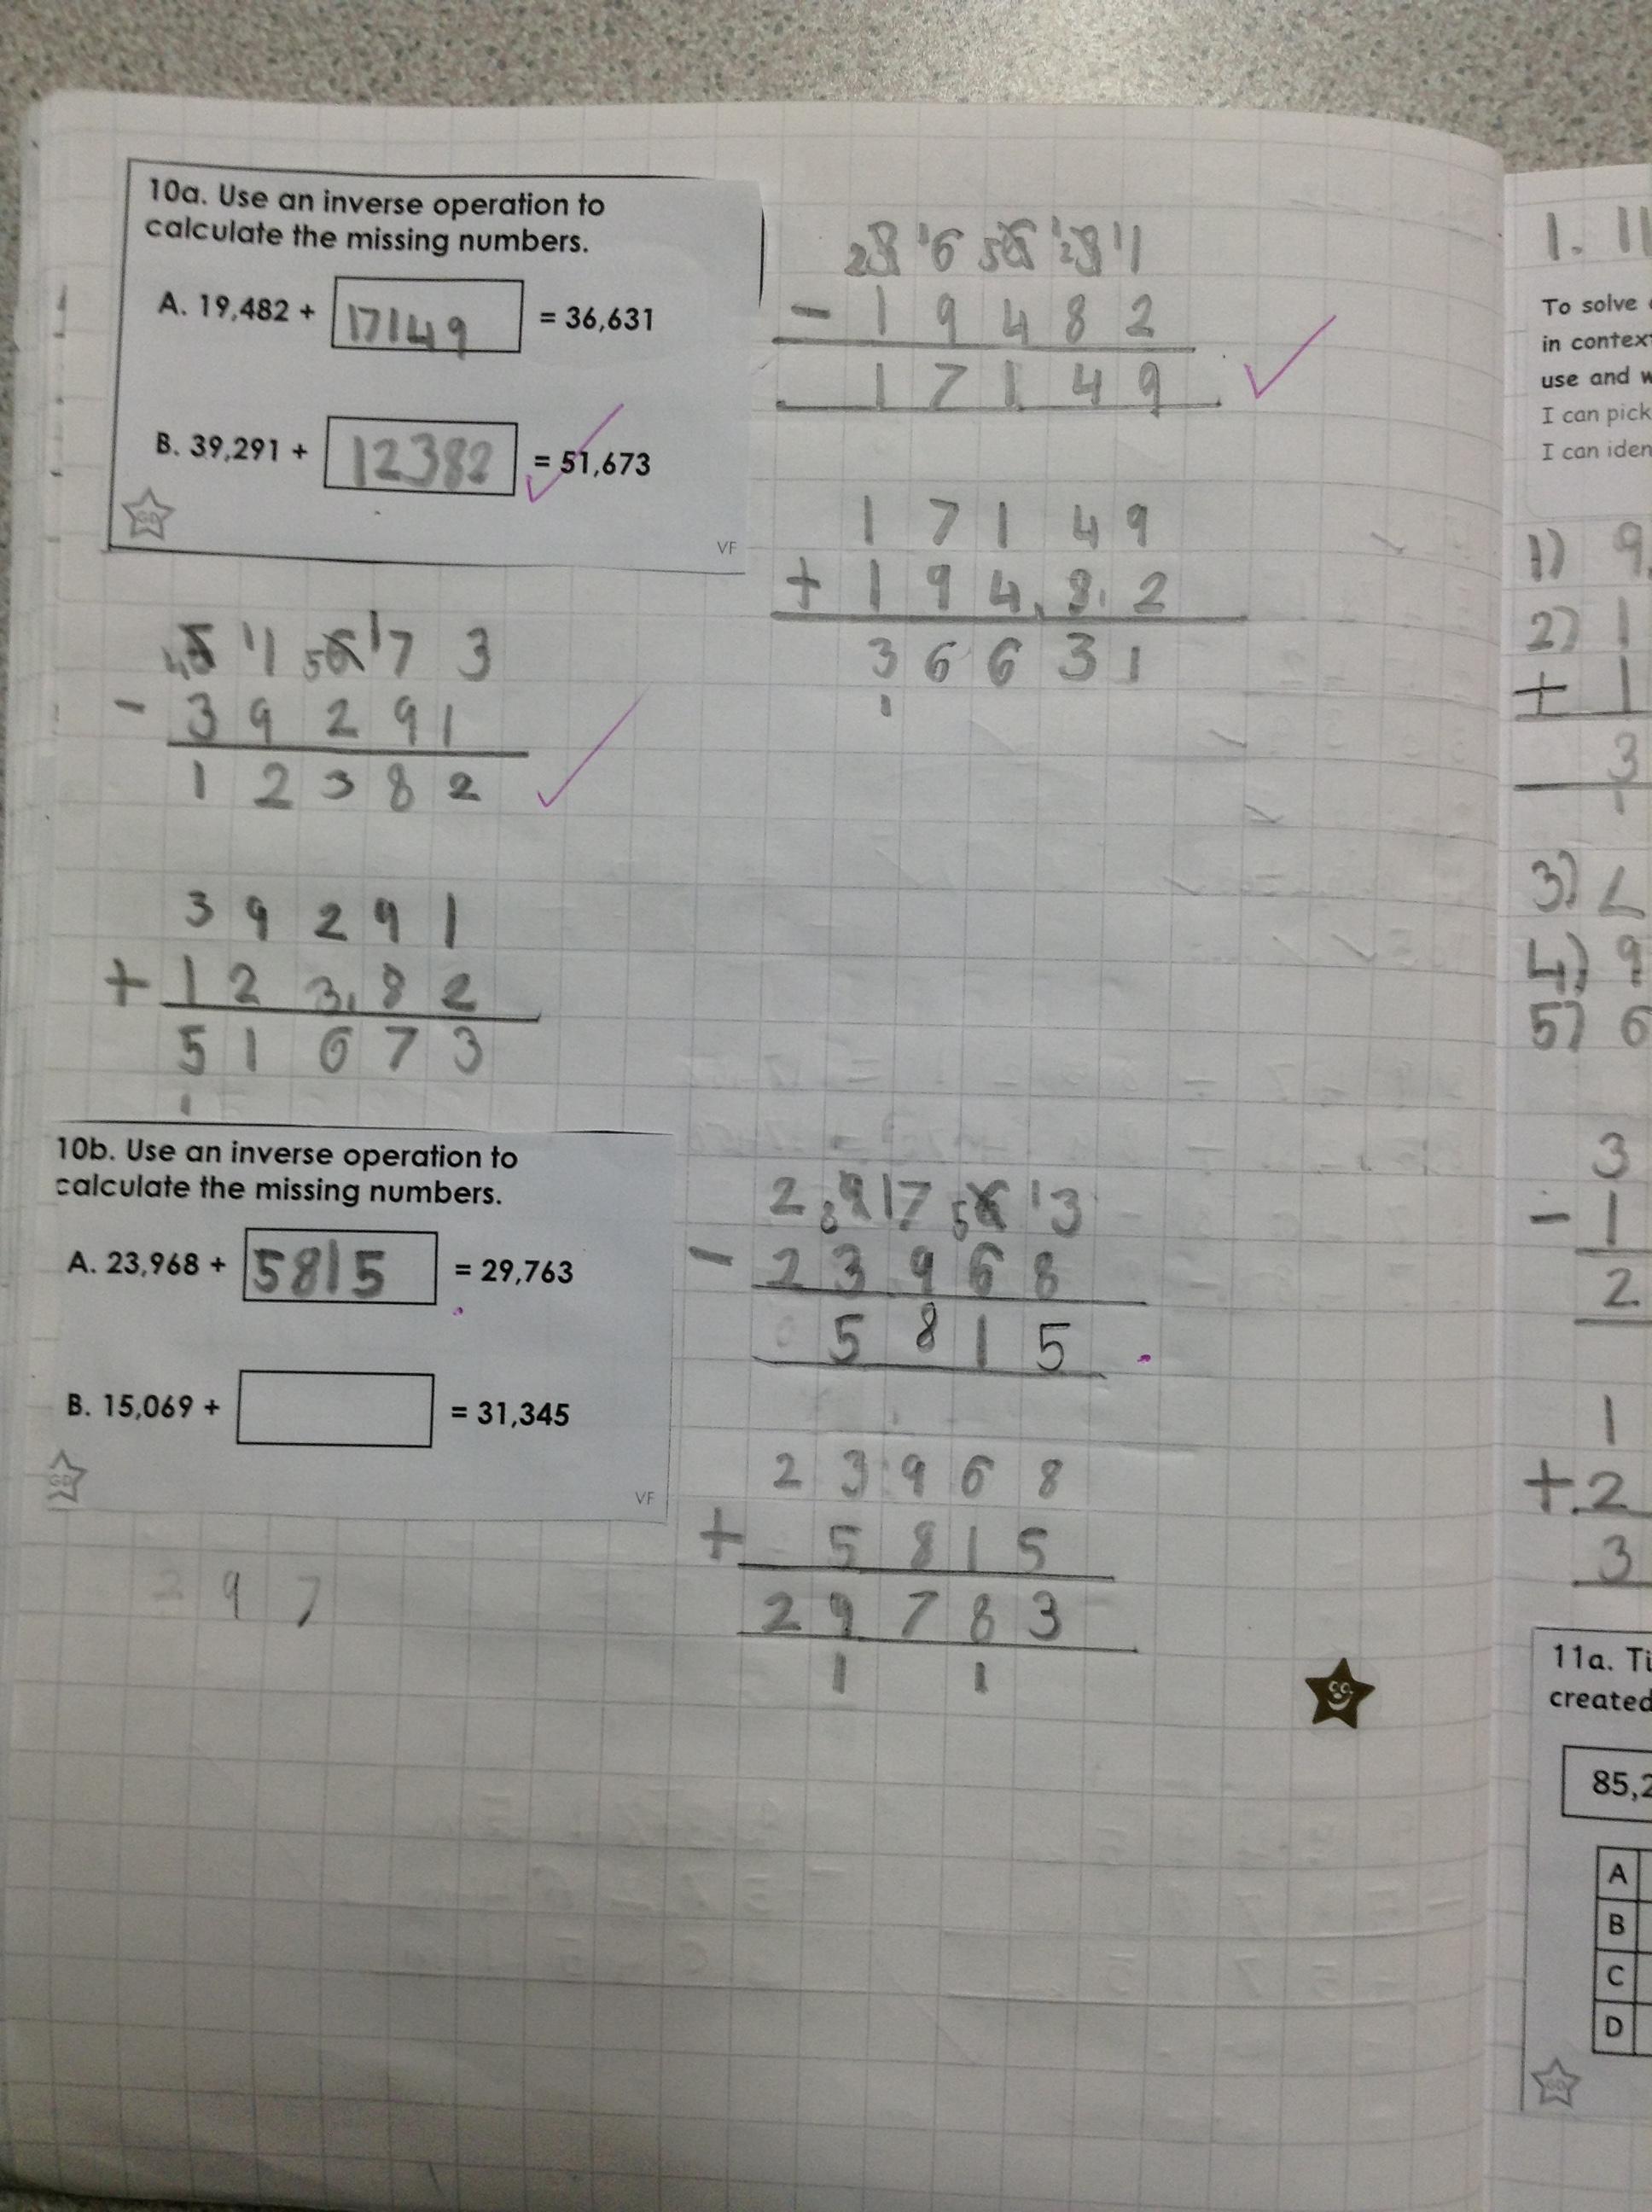 10a. Use an inverse operation to
calculate the missing numbers.
A. 19,482 + 17149 = 36,631
B. 39,291 + 12382 = 51,673
GD
VF
- 1 9 4 8 2
1 7 1 4 9
1 7 1 4 9
+ 1 9 4 8 2
3 6 6 3 1
1
- 3 9 2 9 1
1 2 3 8 2
3 9 2 9 1
+ 1 2 3 8 2
5 1 6 7 3
1
10b. Use an inverse operation to
calculate the missing numbers.
A. 23,968 + 5815 = 29,763
B. 15,069 + = 31,345
GD
VF
- 2 3 9 6 8
5 8 1 5
2 3 9 6 8
+ 5 8 1 5
2 9 7 8 3
1 1
2 9 7
1. 11
To solve
in context
use and w
I can pick
I can iden
1) 9
2) 1
+ 1
3
3)
4) 9
5) 6
3
- 1
2
1
+ 2
3
11a. Ti
created
85,2
A
B
C
D
GD